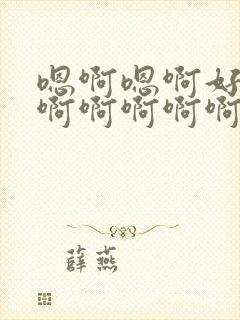 嗯啊嗯啊好
啊啊啊啊啊
薛燕